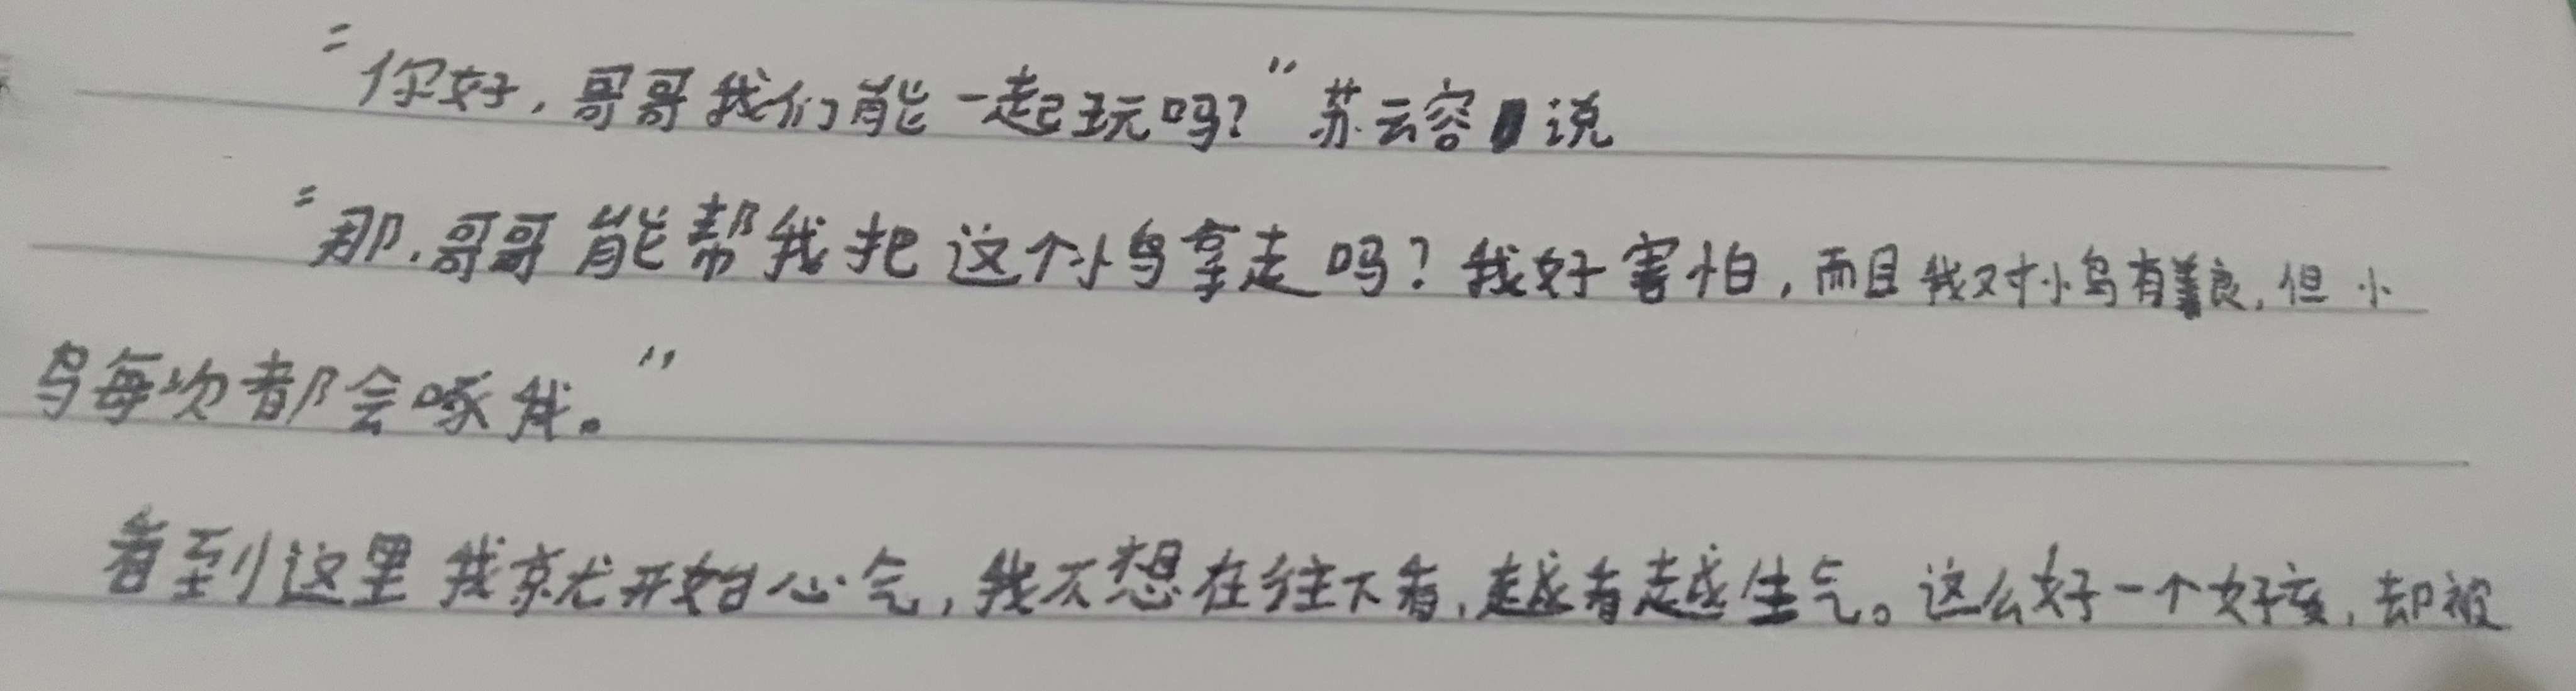 “你好，哥哥我们能一起玩吗？”苏云容说
“那，哥哥能帮我把这个小鸟拿走吗？我好害怕，而且我又对小鸟有善良，但小
鸟每次都会啄我。”
看到这里我就开始心气，我不想在往下看，越看越生气。这么好一个好孩，却被